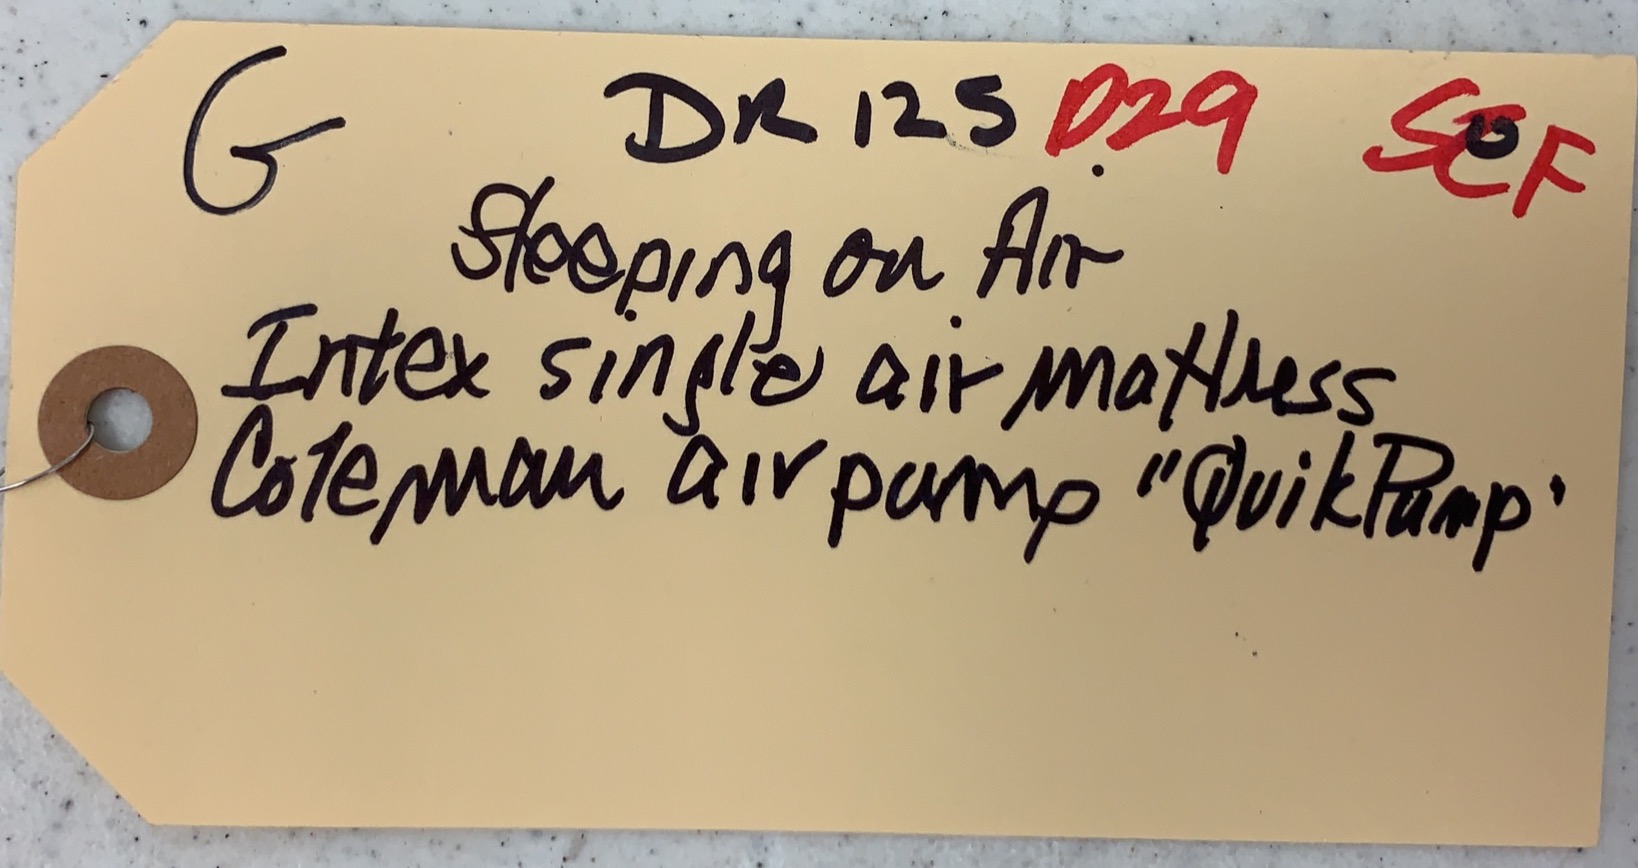 G DR 125 D29 SEF
Sleeping on Air
Intex single air mattress
Coleman air pump "QuikPump"